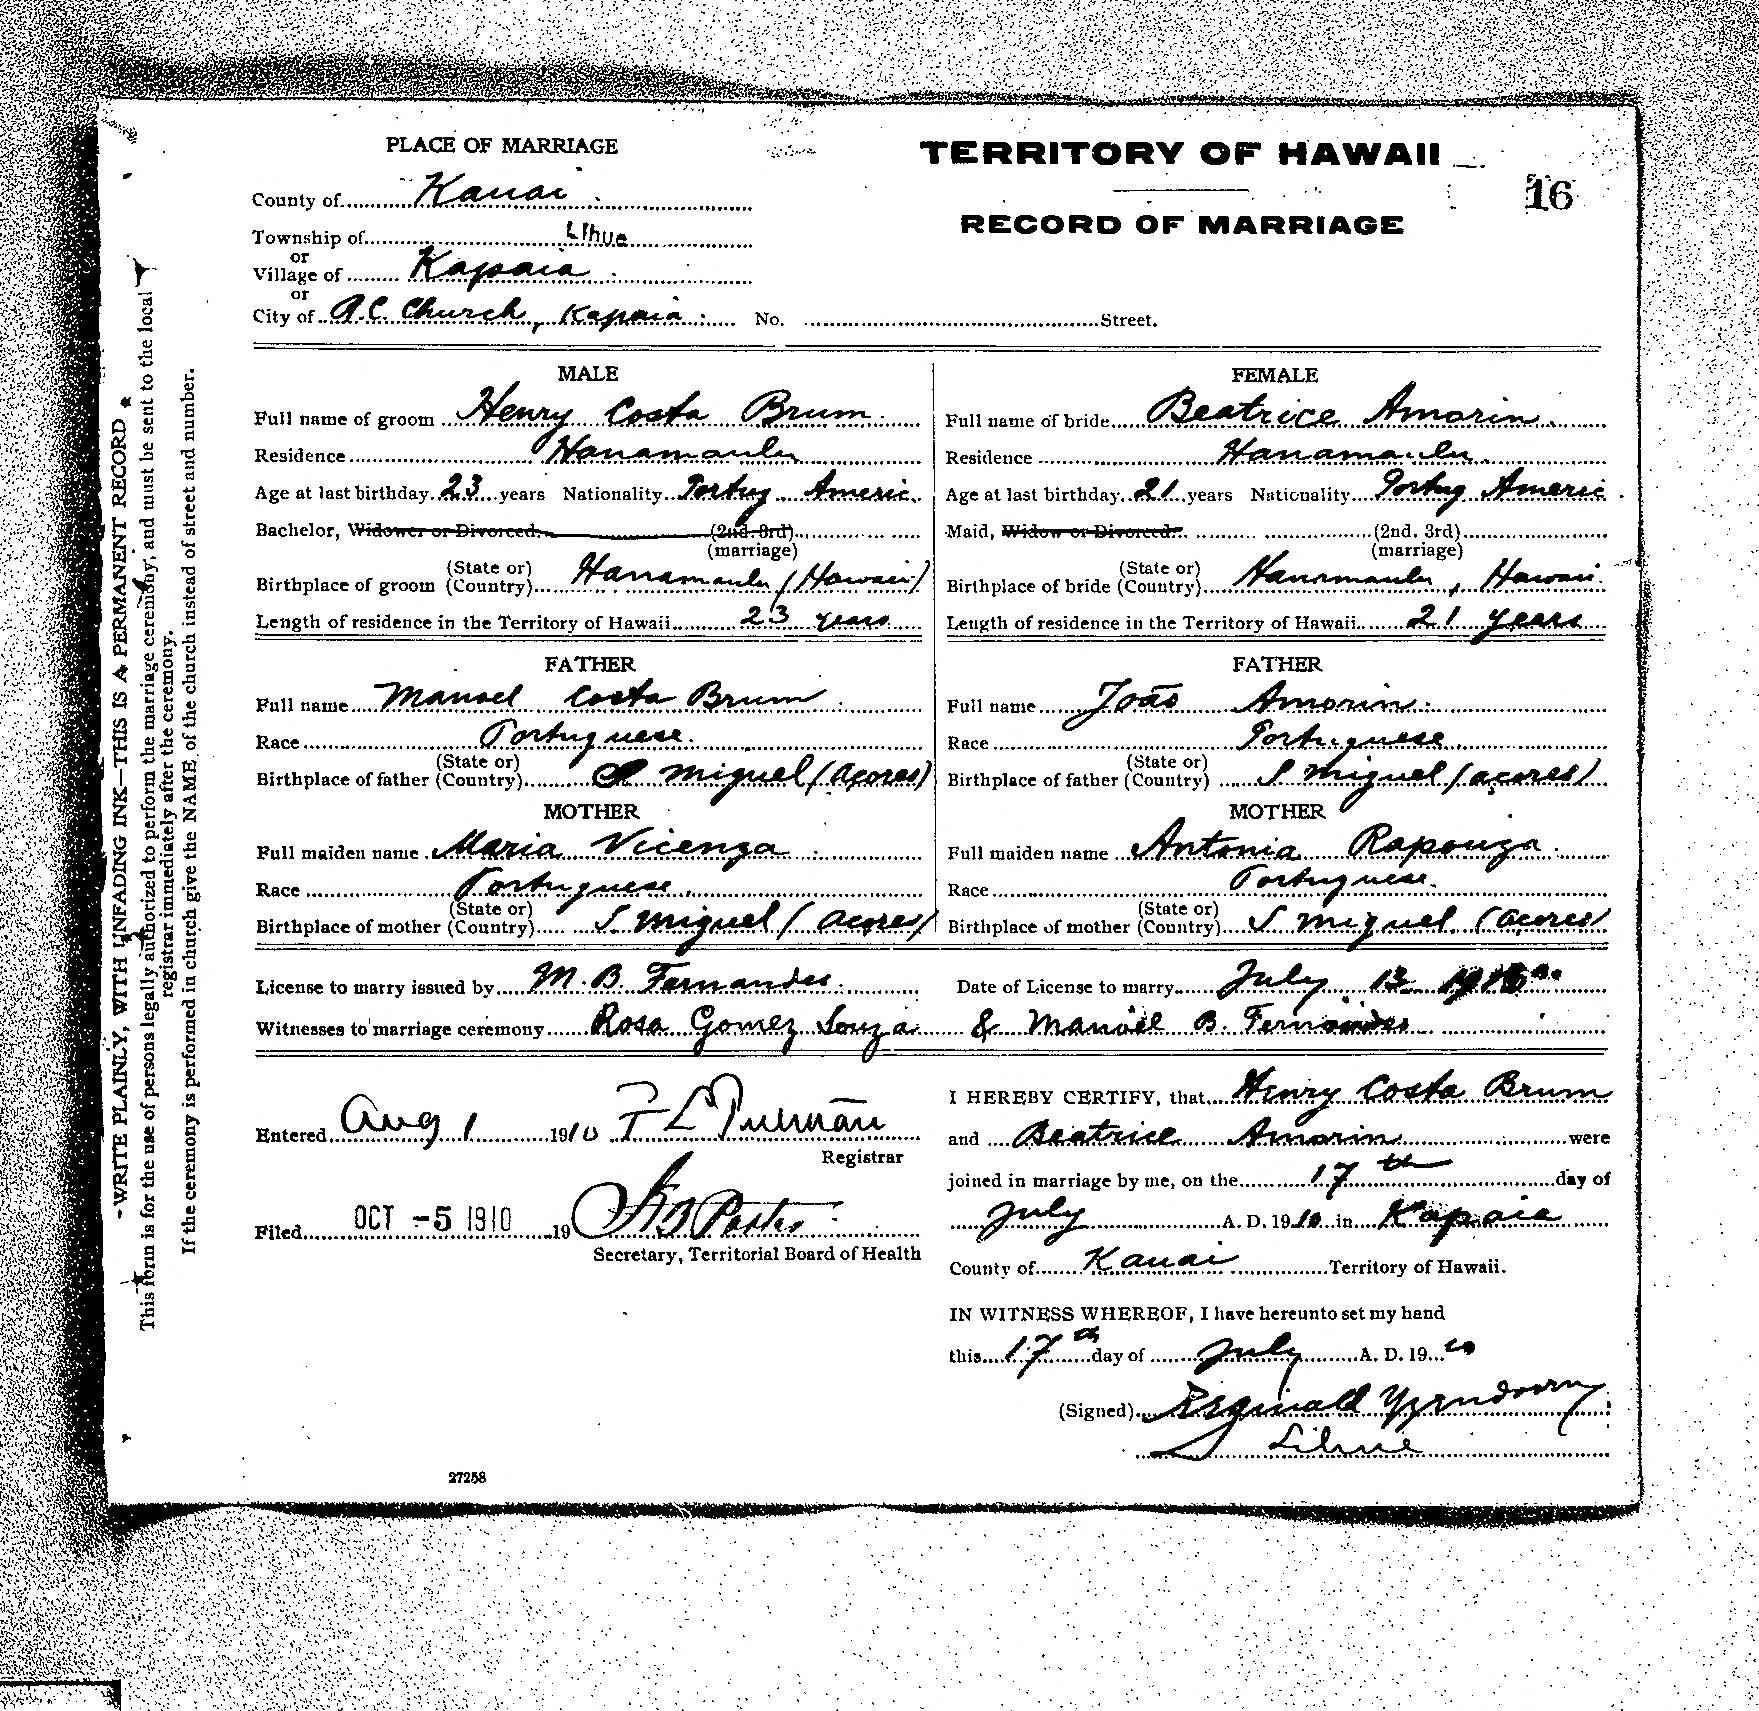 PLACE OF MARRIAGE
TERRITORY OF HAWAII
16
RECORD OF MARRIAGE
County of Kauai
Township of Lihue
or
Village of Kapaia
or
City of R.C. Church, Kapaia No. Street.
MALE
Full name of groom Henry Costa Brum
Residence Hanamaulu
Age at last birthday 23 years Nationality Portug Americ.
Bachelor, Widower or Divorced. (2nd. 3rd)
(marriage)
Birthplace of groom (State or) (Country) Hanamaulu (Hawaii)
Length of residence in the Territory of Hawaii 23 years
FATHER
Full name Manoel Costa Brum
Race Portuguese.
Birthplace of father (State or) (Country) S Miguel (Açores)
MOTHER
Full maiden name Maria Vicenza
Race Portuguese.
Birthplace of mother (State or) (Country) S. Miguel (Açores)
FEMALE
Full name of bride Beatrice Amorin
Residence Hanamaulu
Age at last birthday 21 years Nationality Portug Americ
Maid, Widow or Divorced. (2nd. 3rd)
(marriage)
Birthplace of bride (State or) (Country) Hanamaulu, Hawaii.
Length of residence in the Territory of Hawaii 21 years
FATHER
Full name João Amorin
Race Portuguese
Birthplace of father (State or) (Country) S Miguel (Açores)
MOTHER
Full maiden name Antonia Rapouza
Race Portuguese.
Birthplace of mother (State or) (Country) S Miguel. (Açores)
License to marry issued by M. B. Fernandes. Date of License to marry July 13
Witnesses to marriage ceremony Rosa Gomez Souza & Manoel B. Fernandes
Entered Aug 1 1910
Registrar
Filed OCT -5 1910 19
Secretary, Territorial Board of Health
27258
I HEREBY CERTIFY, that Henry Costa Brum
and Beatrice Amorin were
joined in marriage by me, on the 17th day of
July A. D. 1910 in Kapaia
County of Kauai Territory of Hawaii.
IN WITNESS WHEREOF, I have hereunto set my hand
this 17th day of July A. D. 1910
(Signed) Reginald
Lihue
WRITE PLAINLY, WITH UNFADING INK—THIS IS A PERMANENT RECORD
This form is for the use of persons legally authorized to perform the marriage ceremony, and must be sent to the local
registrar immediately after the ceremony.
If the ceremony is performed in church give the NAME of the church instead of street and number.